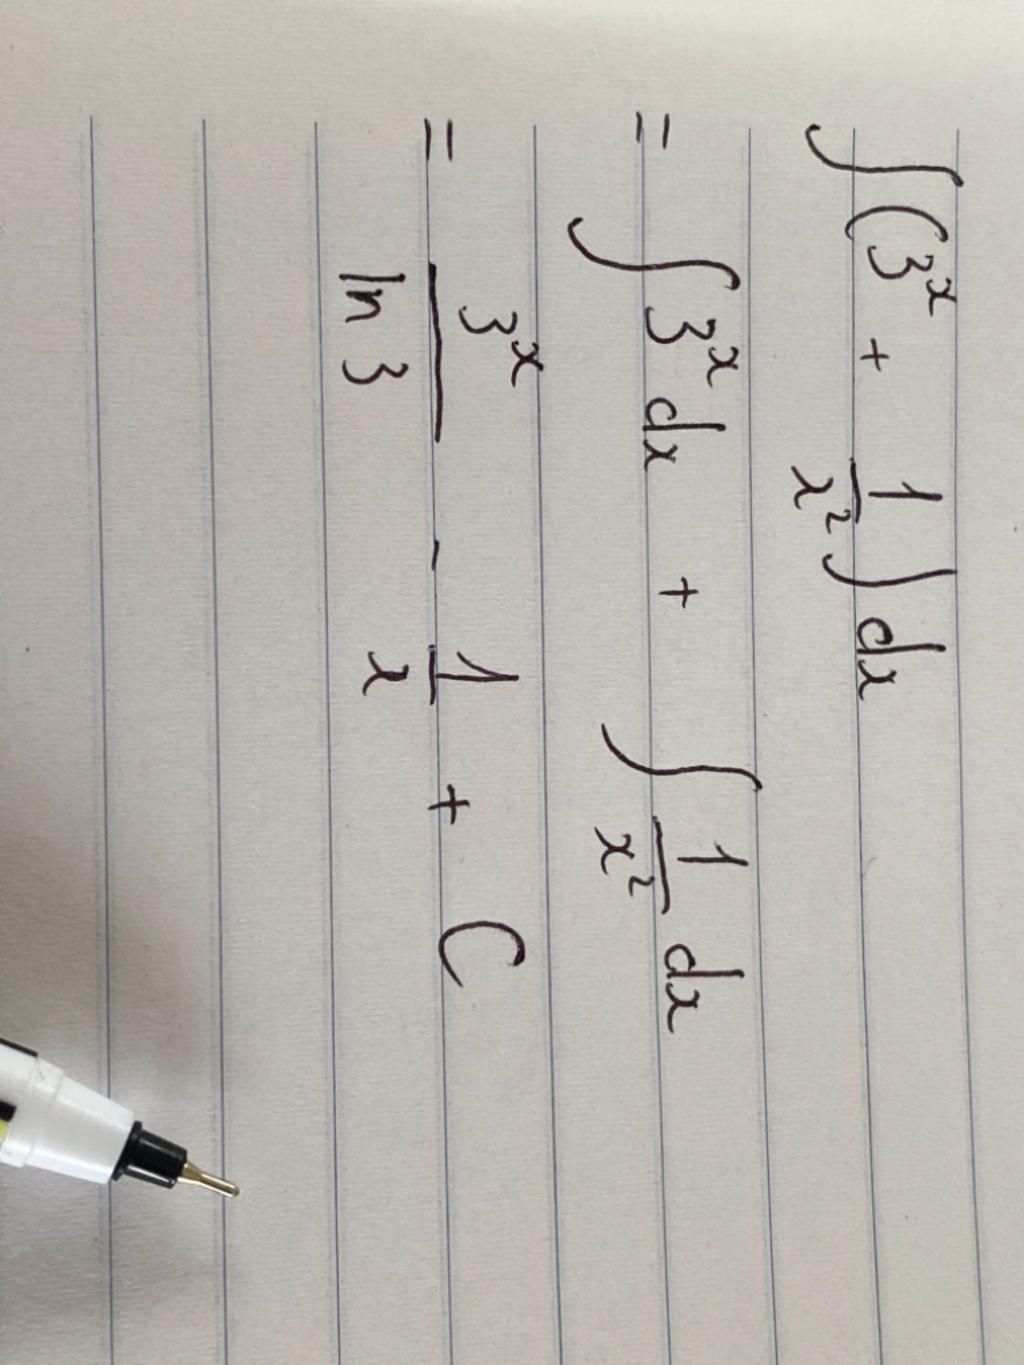 ∫(3^x + 1/x²)dx
= ∫3^x dx + ∫1/x² dx
= 3^x/ln 3 - 1/x + C